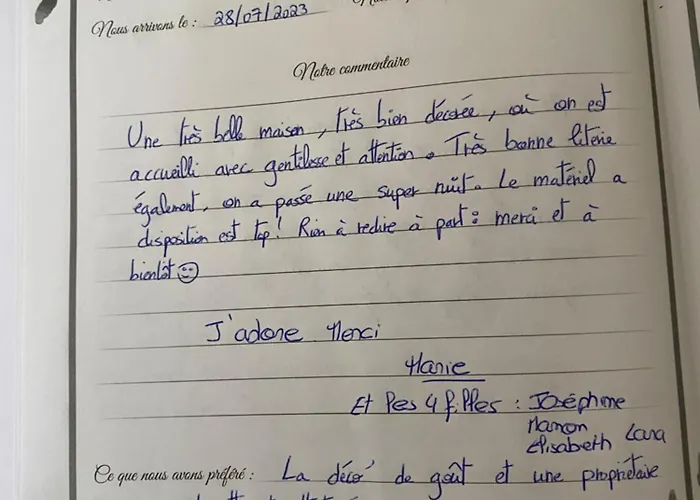 Nous arrivons le : 28/07/2023
Notre commentaire
Une très belle maison, très bien décorée, où on est
accueilli avec gentillesse et attention. Très bonne literie
également, on a passé une super nuit. Le matériel a
disposition est top! Rien à redire à part : merci et à
bientôt ☺
J'adore Merci
Marie
Et les 4 filles : Joséphine
Manon
Elisabeth Lara
Ce que nous avons préféré : La déco de goût et une propriétaire